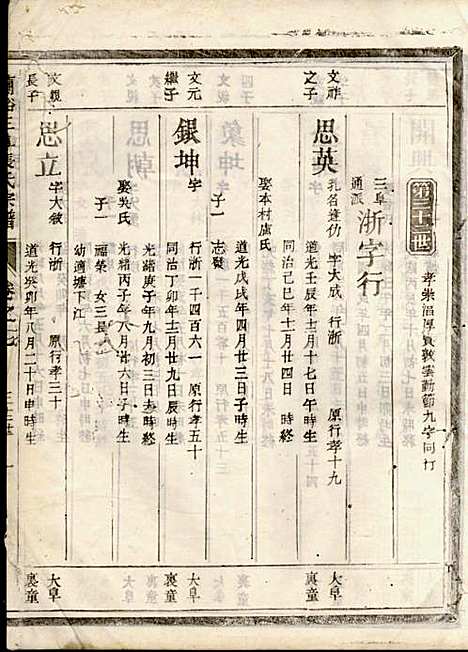 第三十三世
孝崇滔厚貲敦雲勤節九字同行
三阜通派
浙字行
文祚之子
思英
孔名逢仂 字大成 行浙 原行孝十九
道光壬辰年十月十七日午時生
同治己巳年十一月廿四日 時終
大阜裏童
娶本村盧氏
道光戊戌年四月廿三日子時生
子一
志發
文元繼子
銀坤
字 行浙一千四百六一 原行孝五十
同治丁卯年十二月廿九日辰時生
光緒庚子年九月初三日去時終
大阜裏童
娶吳氏
光緒丙子年八月廿六日子時生
子一
福榮
女三長
幼適塘下江
文親長子
思立
字大敘 行浙 原行孝三十
道光癸卯年八月二十日申時生
大阜裏童
氏宗譜
卷之
三十三世